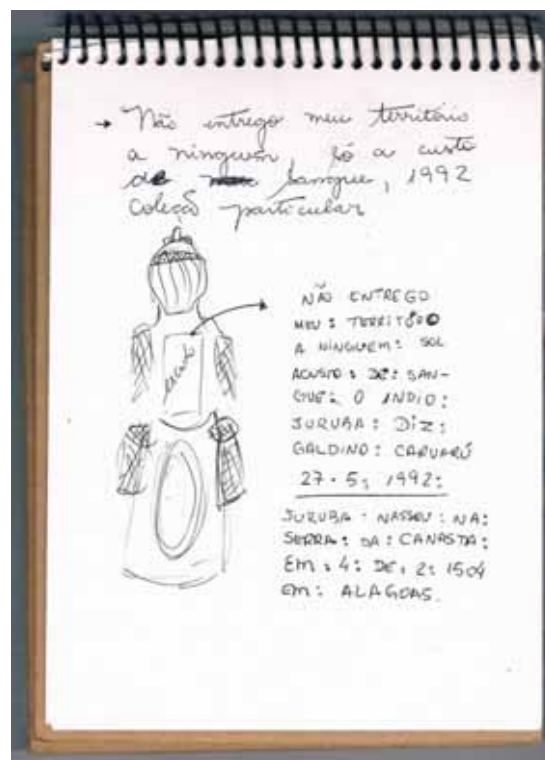 → Não entrego meu território
a ninguém só a custo
de sangue, 1992
Coleção particular
escrito
NÃO ENTREGO
MEU : TERRITÓRO
A NINGUEM : SOL
ACUSTO : DE : SAN-
GUE : O INDIO :
JURUBA : DIZ :
GALDINO : CARUARÚ
27 · 5 : 1992 :
JURUBA · NASSEU : NA :
SERRA : DA : CANASTA :
EM : 4 : DE : 2 : 1504
EM : ALAGOAS.